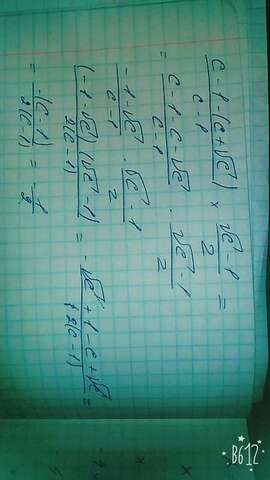 \frac{c-1-(c+\sqrt{c})}{c-1} \times \frac{\sqrt{c}-1}{2} =
= \frac{c-1-c-\sqrt{c}}{c-1} \cdot \frac{\sqrt{c}-1}{2}
\frac{-1-\sqrt{c}}{c-1} \cdot \frac{\sqrt{c}-1}{2}
\frac{(-1-\sqrt{c})(\sqrt{c}-1)}{2(c-1)} = \frac{-\sqrt{c}+1-c+\sqrt{c}}{2(c-1)} =
= \frac{-(c-1)}{2(c-1)} = -\frac{1}{2}
B612